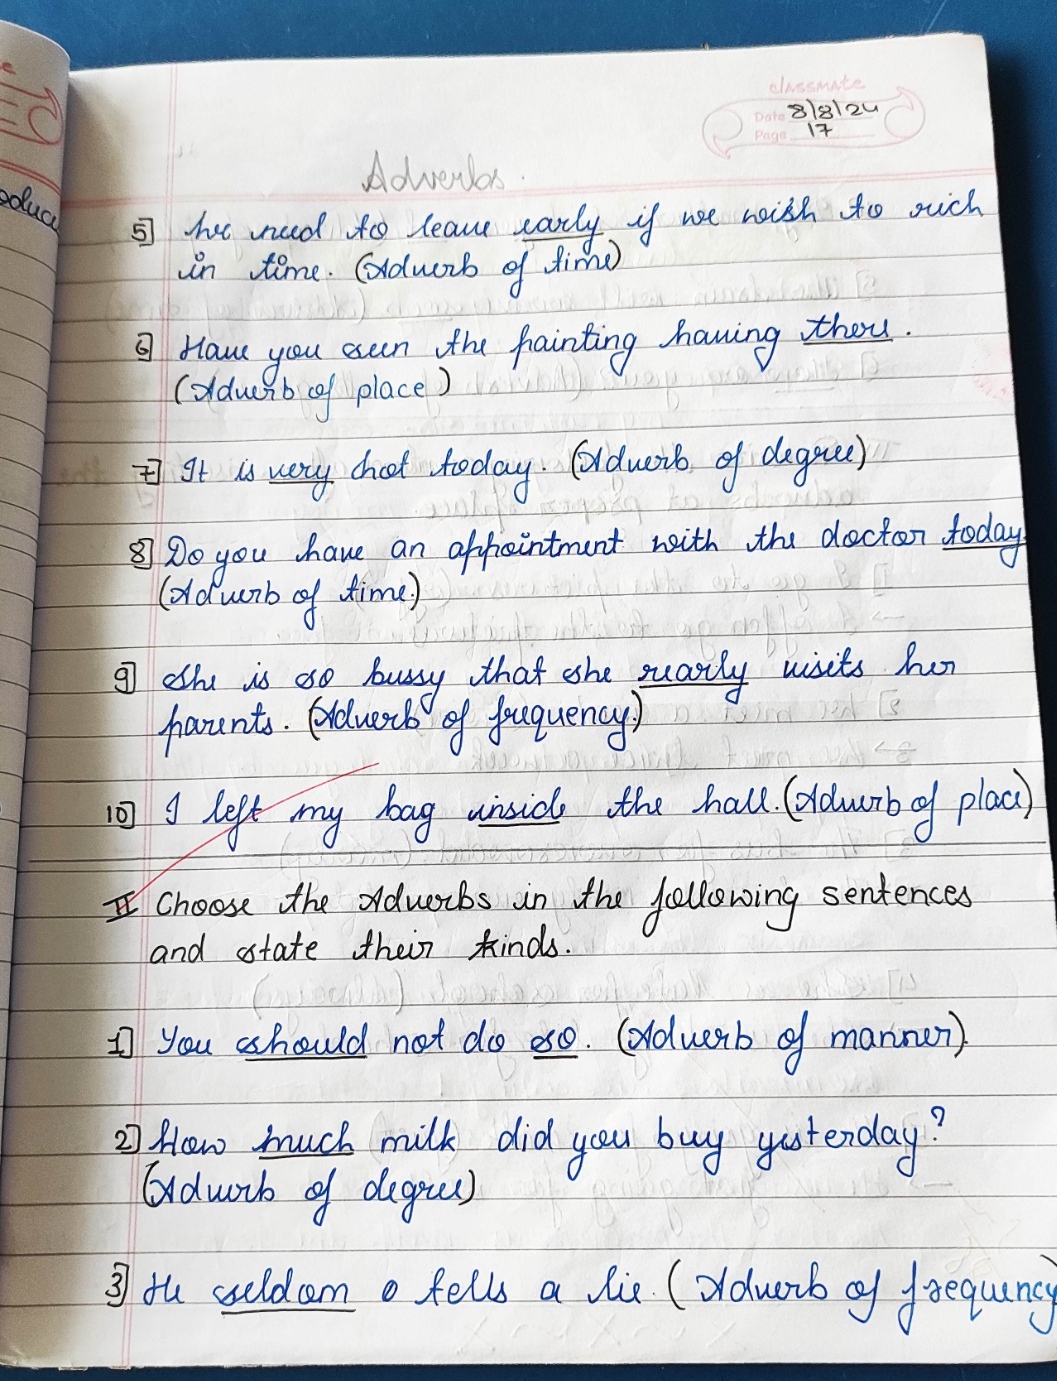 classmate
Date 8/8/24
Page 17
Adverbs.
5] We need to leave early if we wish to rich
in time. (Adverb of time)
6] Have you seen the painting having there.
(Adverb of place)
7] It is very hot today. (Adverb of degree)
8] Do you have an appointment with the doctor today.
(Adverb of time.)
9] She is so bussy that she rearly visits her
parents. (Adverb of frequency.)
10] I left my bag inside the hall. (Adverb of place)
II Choose the Adverbs in the following sentences
and state their kinds.
1] You should not do so. (Adverb of manner).
2] How much milk did you buy yesterday?
(Adverb of degree)
3] He seldom tells a lie. (Adverb of frequency